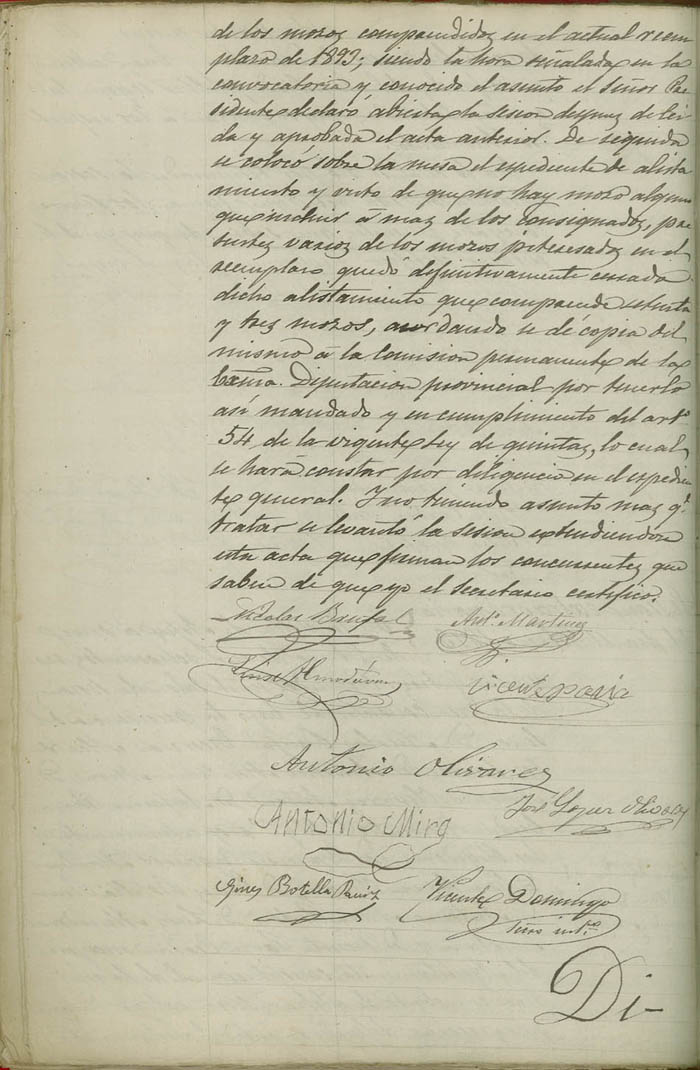 de los mozos comprendidos en el actual reem
plazo de 1893; siendo la hora señalada en la
convocatoria y conocido el asunto el Señor Pre
sidente declaró abierta la sesion despues de lei
da y aprobada el acta anterior. De seguida
se colocó sobre la mesa el espediente de alista
miento y visto de que no hay mozo alguno
que incluir á mas de los consignados, pre
sentes varios de los mozos interesados en el
reemplazo quedó definitivamente cerrado
dicho alistamiento que comprende setenta
y tres mozos, acordando se dé copia del
mismo á la Comision permanente de la
Excma. Diputacion provincial por tenerlo
asi mandado y en cumplimiento del artº
54 de la vigente Ley de quintas, lo cual
se hará constar por diligencia en el espedien
te general. Y no teniendo asunto mas qe
tratar se levantó la sesion extendiendose
esta acta que firman los concurrentes que
saben de que yo el secretario certifico.
Nicolas Brufal Antº Martinez
Almodóvar Vicente
Antonio Olivares
José Lopez
Antonio Mira
Gines Botella Vicente Domingo
Srio intº
Di-